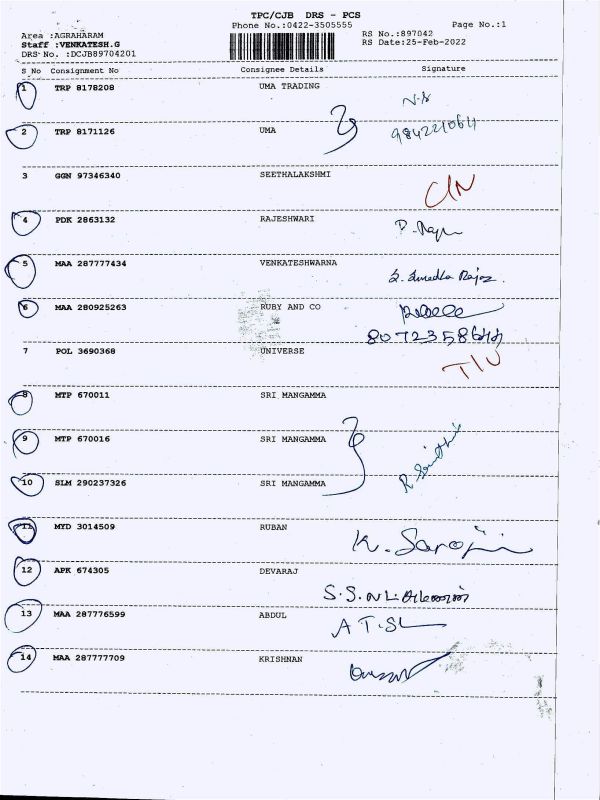 TPC/CJB DRS - PCS
Phone No.:0422-3505555
Page No.:1
Area :AGRAHARAM
RS No.:897042
Staff :VENKATESH.G
RS Date:25-Feb-2022
DRS No. :DCJB89704201
S No Consignment No Consignee Details Signature
1 TRP 8178208 UMA TRADING
N.S
2 TRP 8171126 UMA
3 GGN 97346340 SEETHALAKSHMI
C/N
4 PDK 2863132 RAJESHWARI
5 MAA 287777434 VENKATESHWARNA
6 MAA 280925263 RUBY AND CO
7 POL 3690368 UNIVERSE
8 MTP 670011 SRI MANGAMMA
9 MTP 670016 SRI MANGAMMA
10 SLM 290237326 SRI MANGAMMA
11 MYD 3014509 RUBAN
K. Sarojini
12 APK 674305 DEVARAJ
13 MAA 287776599 ABDUL
A T.SL
14 MAA 287777709 KRISHNAN